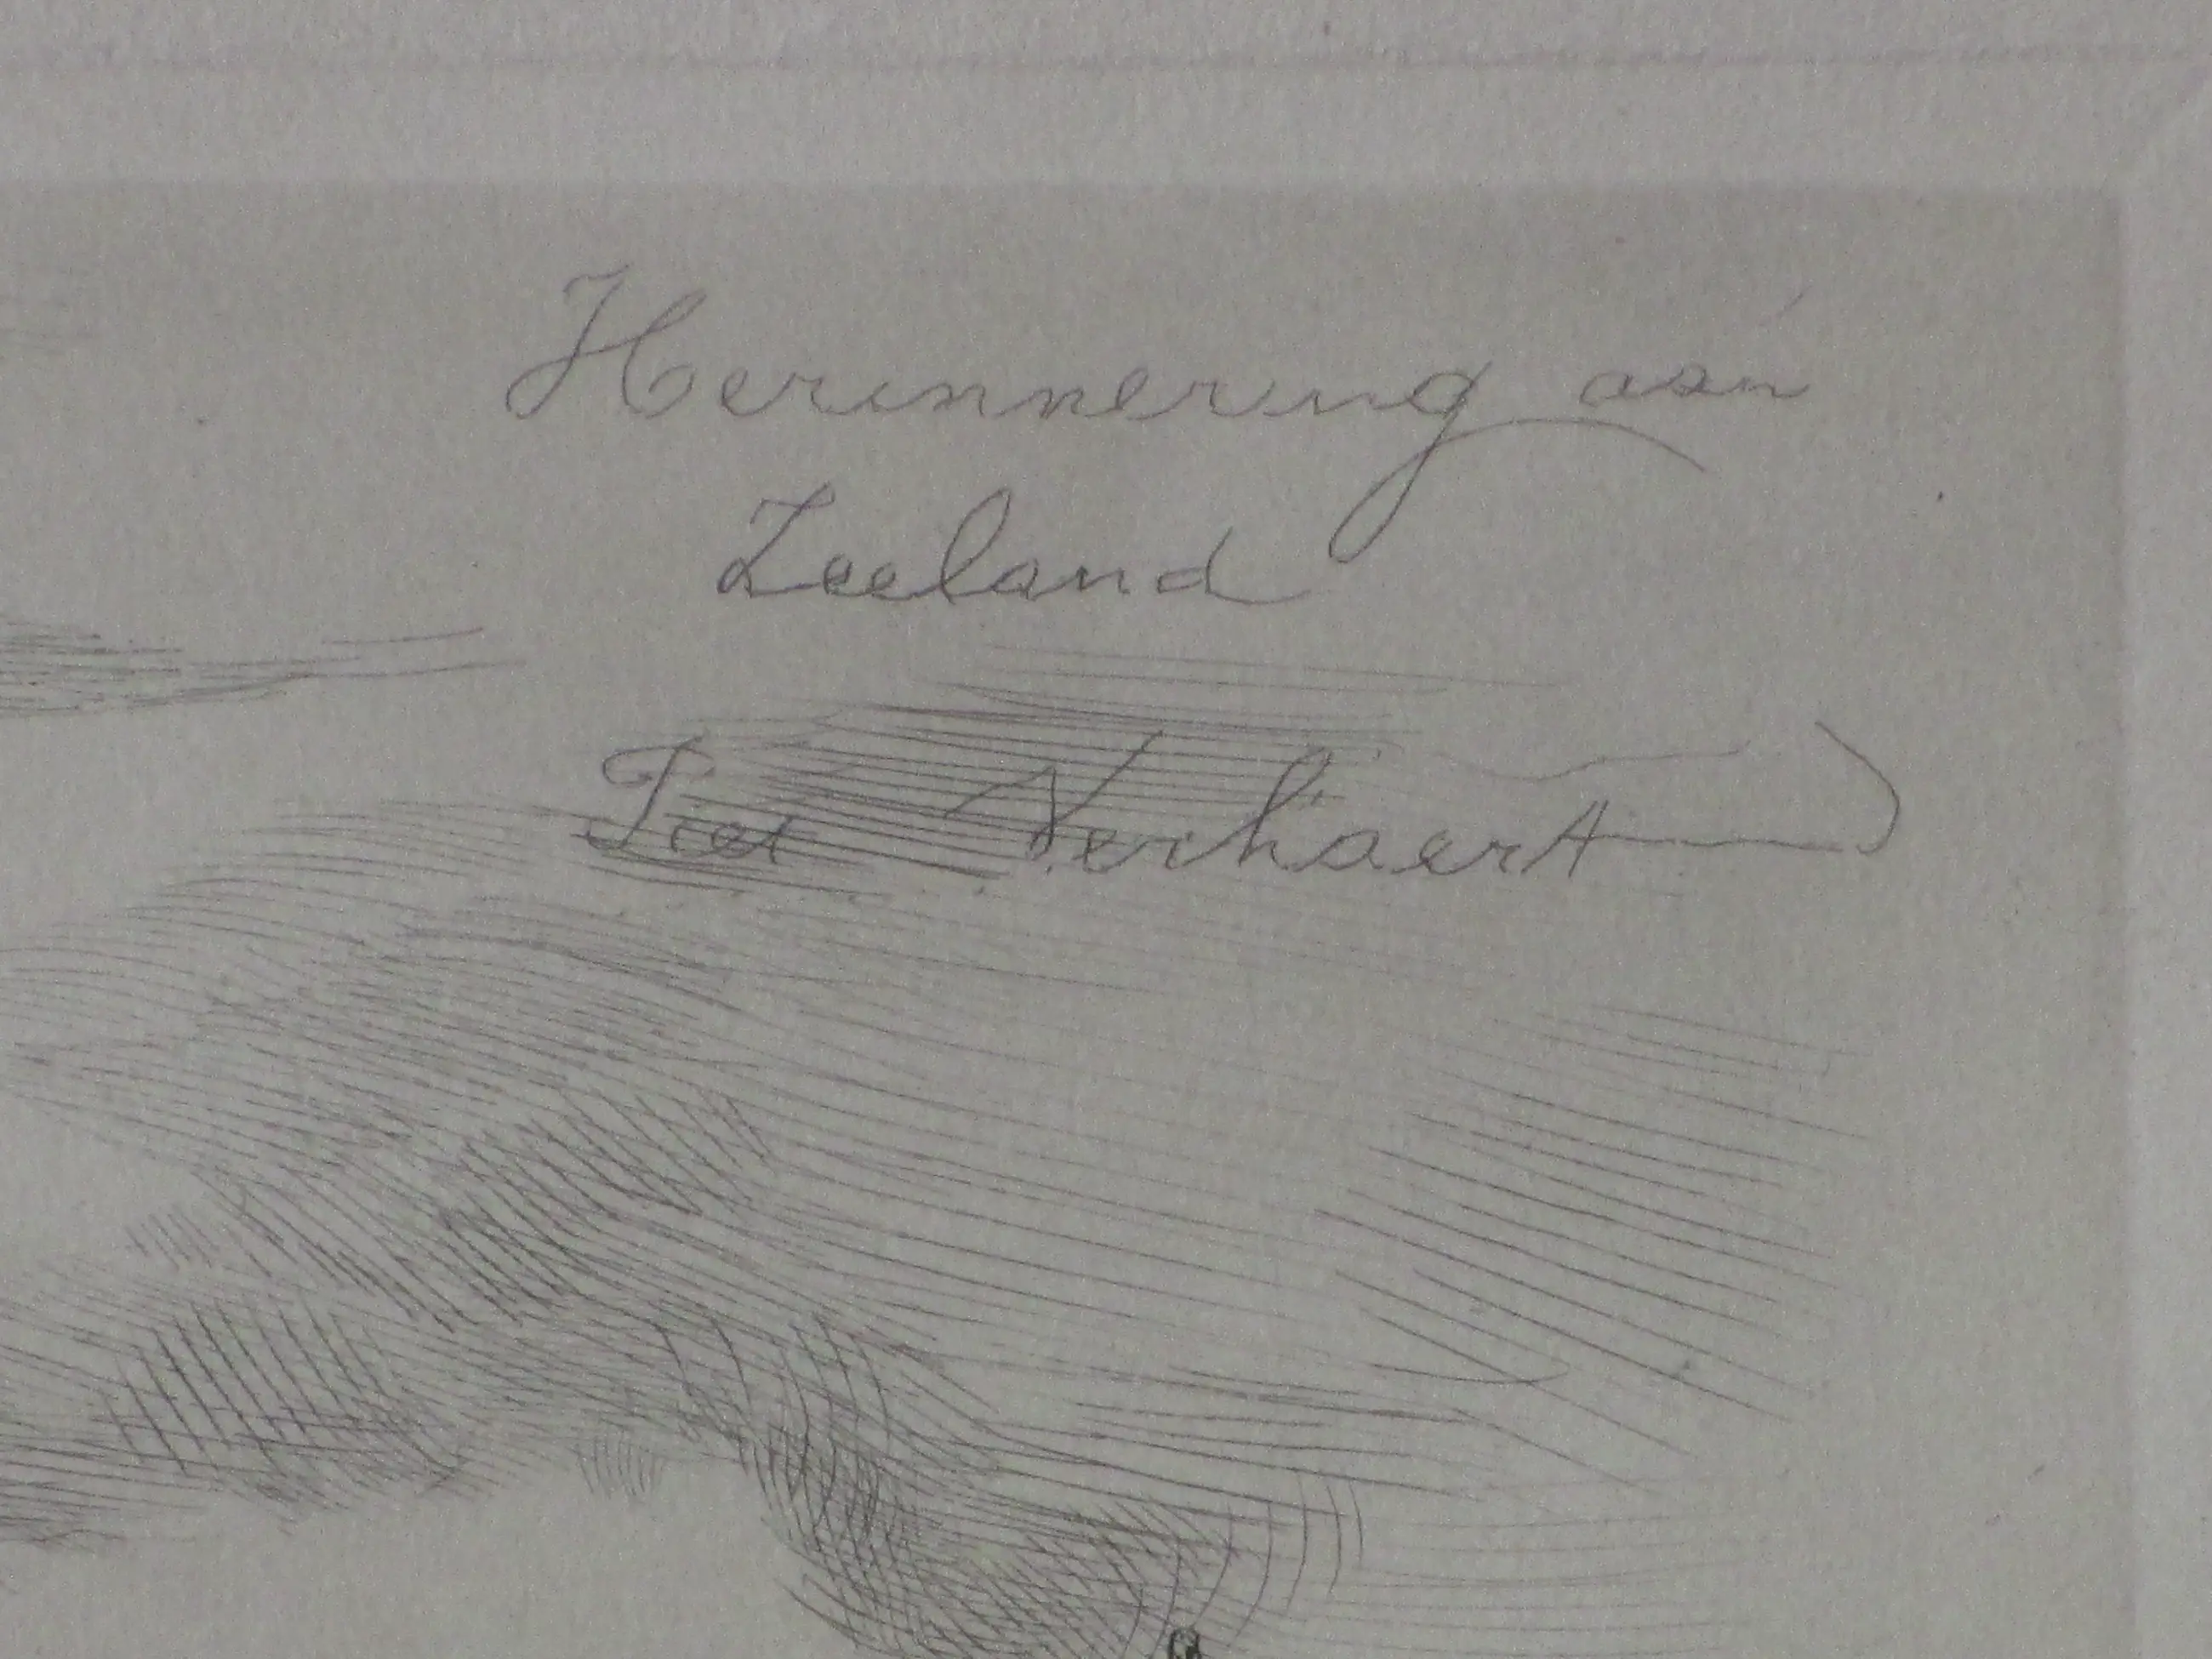 Herinnering aan
Zeeland
Piet Verhaert